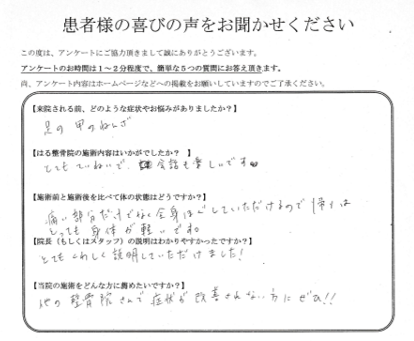 患者様の喜びの声をお聞かせください
この度は、アンケートにご協力頂きまして誠にありがとうございます。
アンケートのお時間は1~2分程度で、簡単な5つの質問にお答え頂きます。
尚、アンケート内容はホームページなどへの掲載をお願いしていますのでご了承ください。
【来院される前、どのような症状やお悩みがありましたか?】
足の甲のねんざ
【はる整骨院の施術内容はいかがでしたか?】
とてもていねいで、会話も楽しいです
【施術前と施術後を比べて体の状態はどうですか?】
痛い部分だけでなく全身ほぐしていただけるので帰りは
とっても身体が軽いです。
【院長(もしくはスタッフ)の説明はわかりやすかったですか?】
とてもくわしく説明していただけました!
【当院の施術をどんな方に薦めたいですか?】
他の整骨院さんで症状が改善されない方にぜひ!!